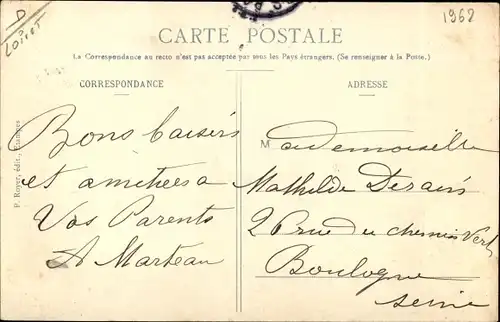 D
Loiret
1962
CARTE POSTALE
La Correspondance au recto n'est pas acceptée par tous les Pays étrangers. (Se renseigner à la Poste.)
CORRESPONDANCE
Bons baisers
et amitiées a
Vos Parents
A Marteau
P. Royer, édit., Étampes
ADRESSE
Mademoiselle
Mathilde
26 rue du chemin Vert
Boulogne
Seine